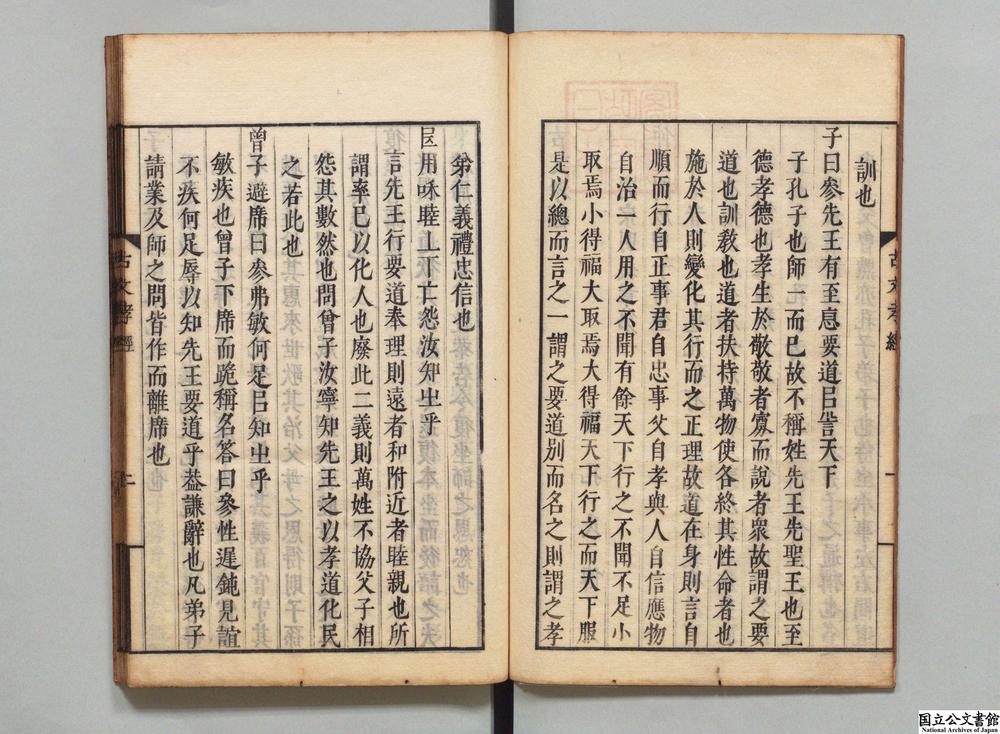 訓也
子曰參先王有至悳要道㠯訓天下
子孔子也師一而已故不稱姓先王先聖王也至
德孝德也孝生於敬敬者寡而說者衆故謂之要
道也訓教也道者扶持萬物使各終其性命者也
施於人則變化其行而之正理故道在身則言自
順而行自正事君自忠事父自孝與人自信應物
自治一人用之不聞有餘天下行之不聞不足小
取焉小得福大取焉大得福天下行之而天下服
是以總而言之一謂之要道別而名之則謂之孝
古文孝經
一
弟仁義禮忠信也
民用咊睦上下亡怨汝知㞢乎
言先王行要道奉理則遠者和附近者睦親也所
謂率己以化人也廢此二義則萬姓不協父子相
怨其數然也問曾子汝寧知先王之以孝道化民
之若此也
曾子避席曰參弗敏何足㠯知㞢乎
敏疾也曾子下席而跪稱名答曰參性遲鈍見誼
不疾何足辱以知先王要道乎葢謙辭也凡弟子
請業及師之問皆作而離席也
古文孝經
二
国立公文書館
National Archives of Japan